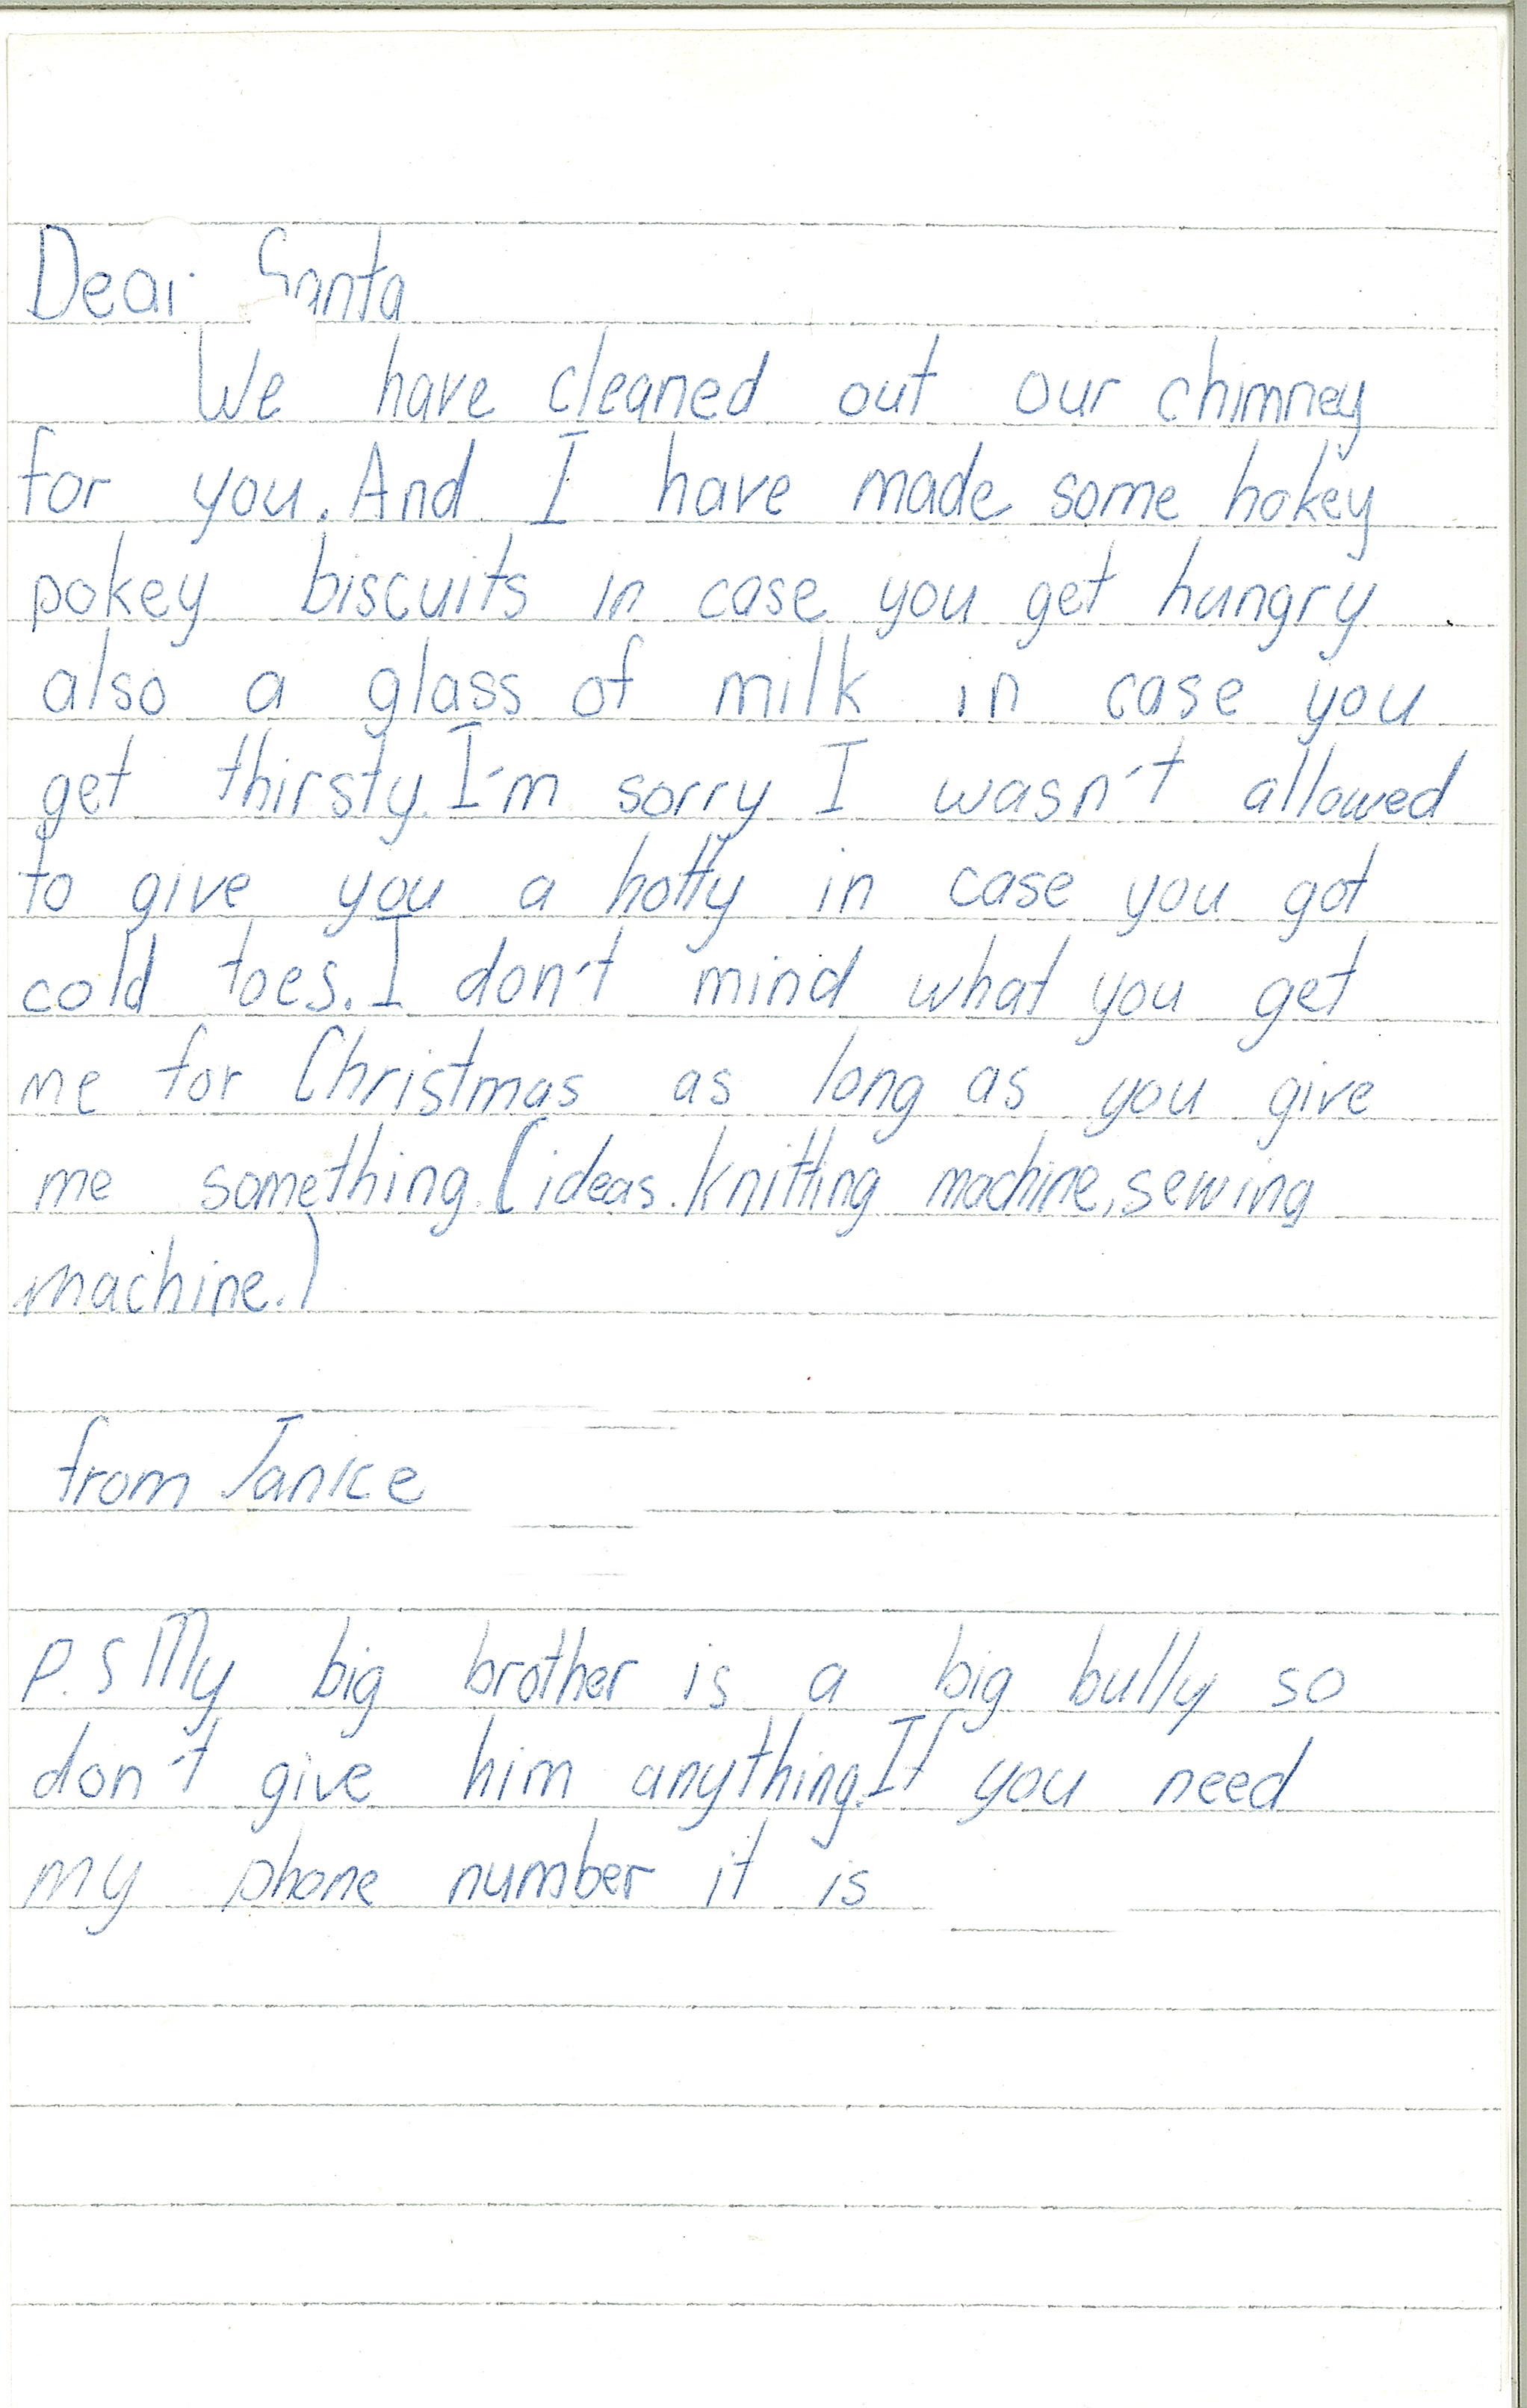 Dear Santa
We have cleaned out our chimney
for you. And I have made some hokey
pokey biscuits in case you get hungry
also a glass of milk in case you
get thirsty. I'm sorry I wasn't allowed
to give you a hotty in case you got
cold toes. I don't mind what you get
me for Christmas as long as you give
me something. (ideas. knitting machine, sewing
machine.)
from Janice
P.S My big brother is a big bully so
don't give him anything. If you need
my phone number it is